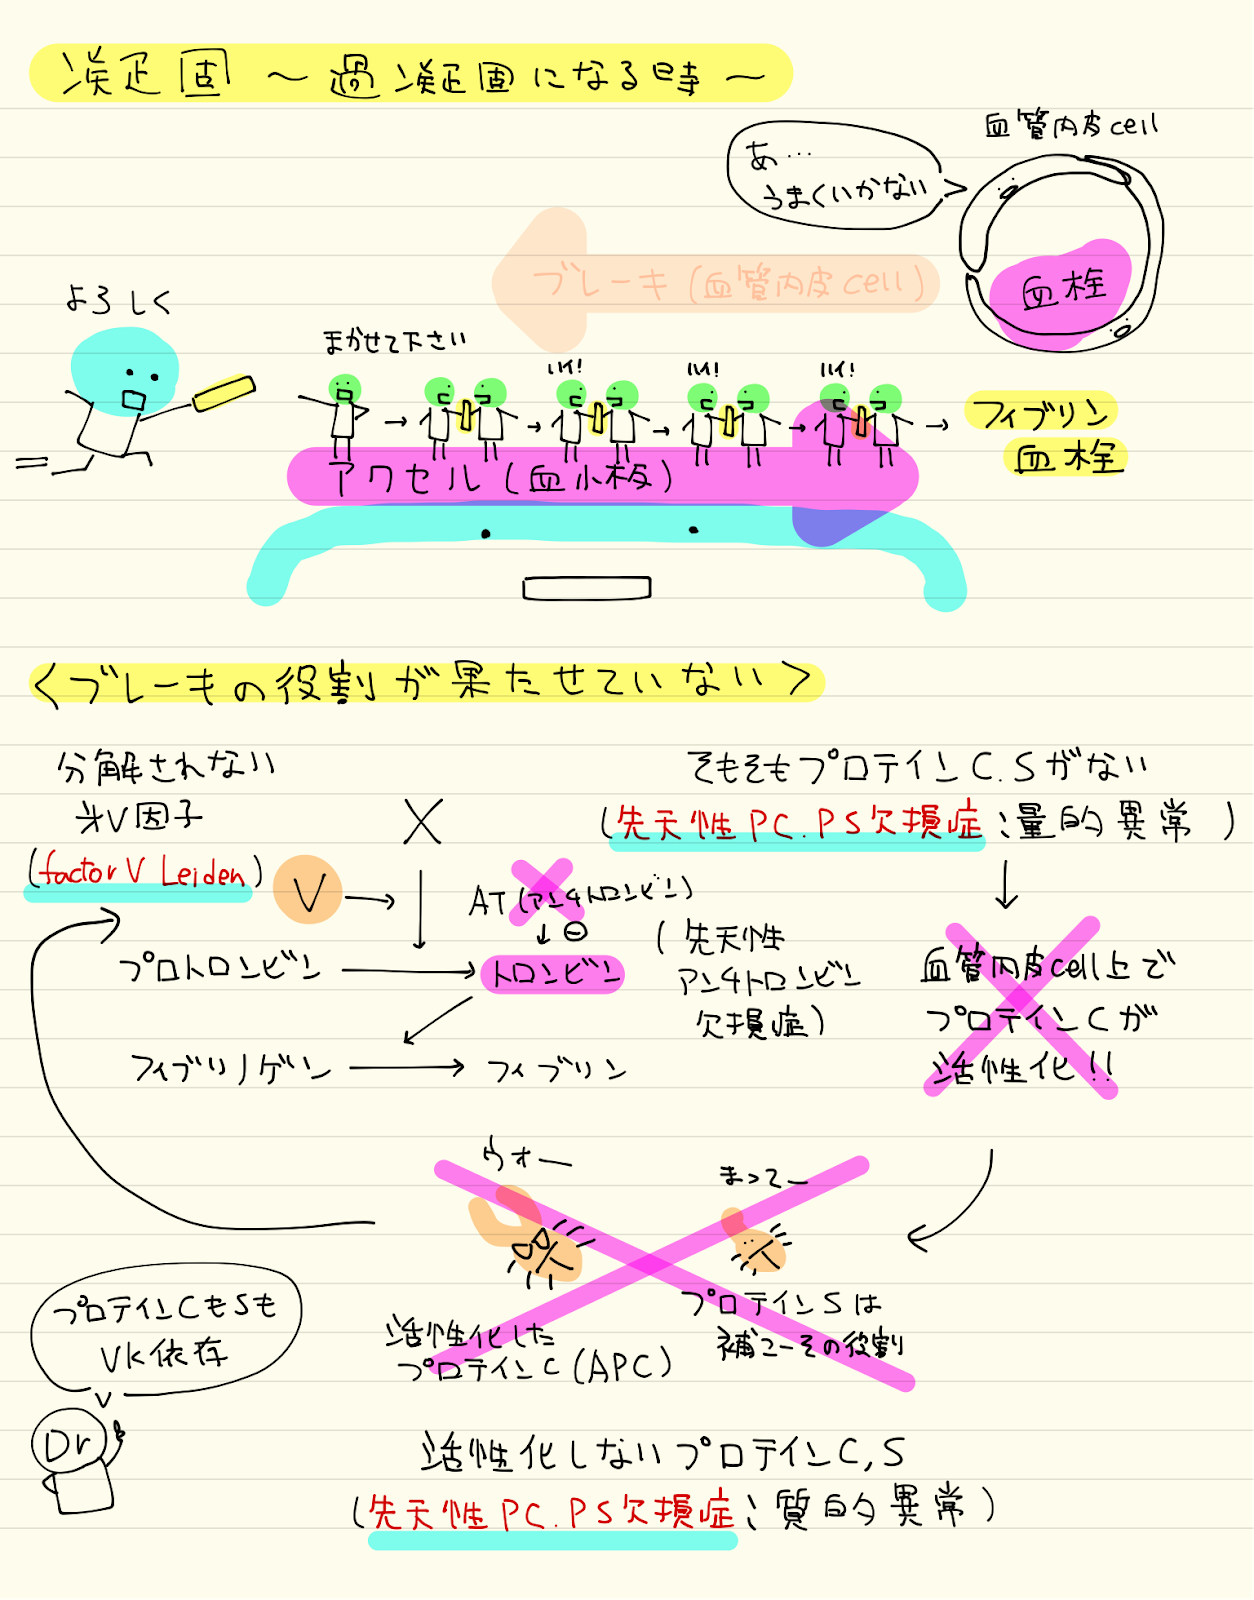 凝固 ～過凝固になる時～
血管内皮cell
あ…
うまくいかない
ブレーキ(血管内皮cell)
血栓
よろしく
まかせて下さい
ハイ!
ハイ!
ハイ!
フィブリン
血栓
アクセル(血小板)
<ブレーキの役割が果たせていない>
分解されない
半V因子
(factor V Leiden)
V
X
AT(アンチトロンビン)
⊖
(先天性
アンチトロンビン
欠損症)
プロトロンビン
トロンビン
フィブリノゲン
フィブリン
そもそもプロテインC.Sがない
(先天性PC.PS欠損症;量的異常)
血管内皮cell上で
プロテインCが
活性化!!
ウオー
まってー
活性化した
プロテインC(APC)
プロテインSは
補コーその役割
プロテインCもSも
VK依存
Dr
活性化しないプロテインC,S
(先天性PC.PS欠損症;質的異常)